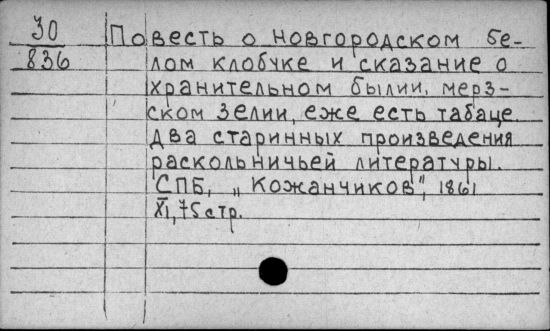 30
836
Повесть о новгородском бе-
лом клобуке и сказание о
хранительном былии, мерз-
ском зелии, еже есть табаце.
Два старинных произведения
раскольничьей литературы.
СПБ, „Кожанчиков", 1861
XI, 75 стр.